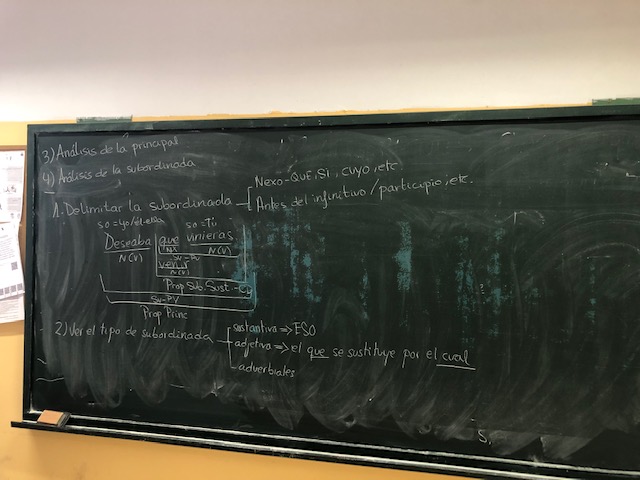 3) Análisis de la principal
4) Análisis de la subordinada
1. Delimitar la subordinada
Nexo-QUE, SI, CUYO, etc
Antes del infinitivo/participio, etc.
SO=yo/él-ella SO=Tú
Deseaba que vinieras
N(V) NX N(V)
SV-PV
venir
N(V)
Prop Sub. Sust.-
SV-PV
Prop Princ
2) Ver el tipo de subordinada
sustantiva => ESO
adjetiva => el que se sustituye por el cual
adverbiales
S.